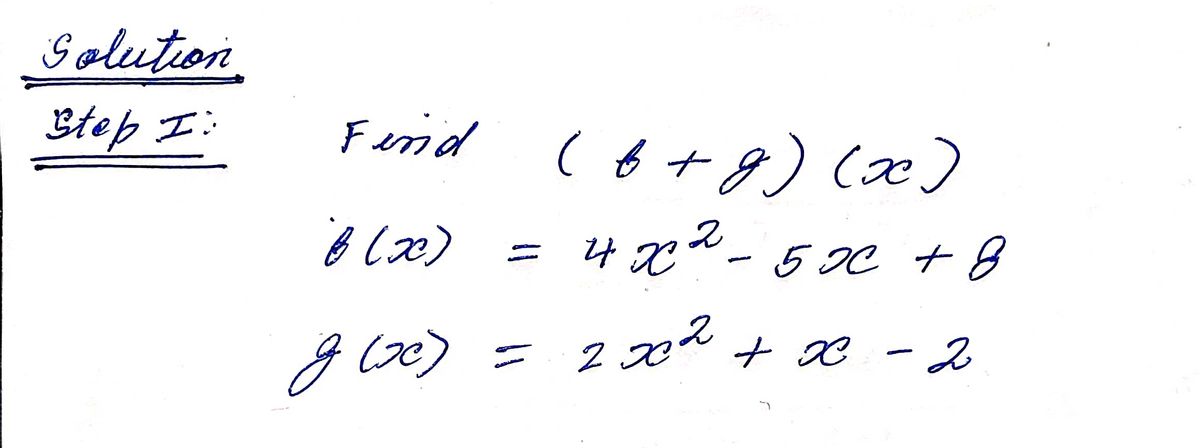 Solution
Step I: Find (f + g) (x)
f(x) = 4x² - 5x + 8
g(x) = 2x² + x - 2